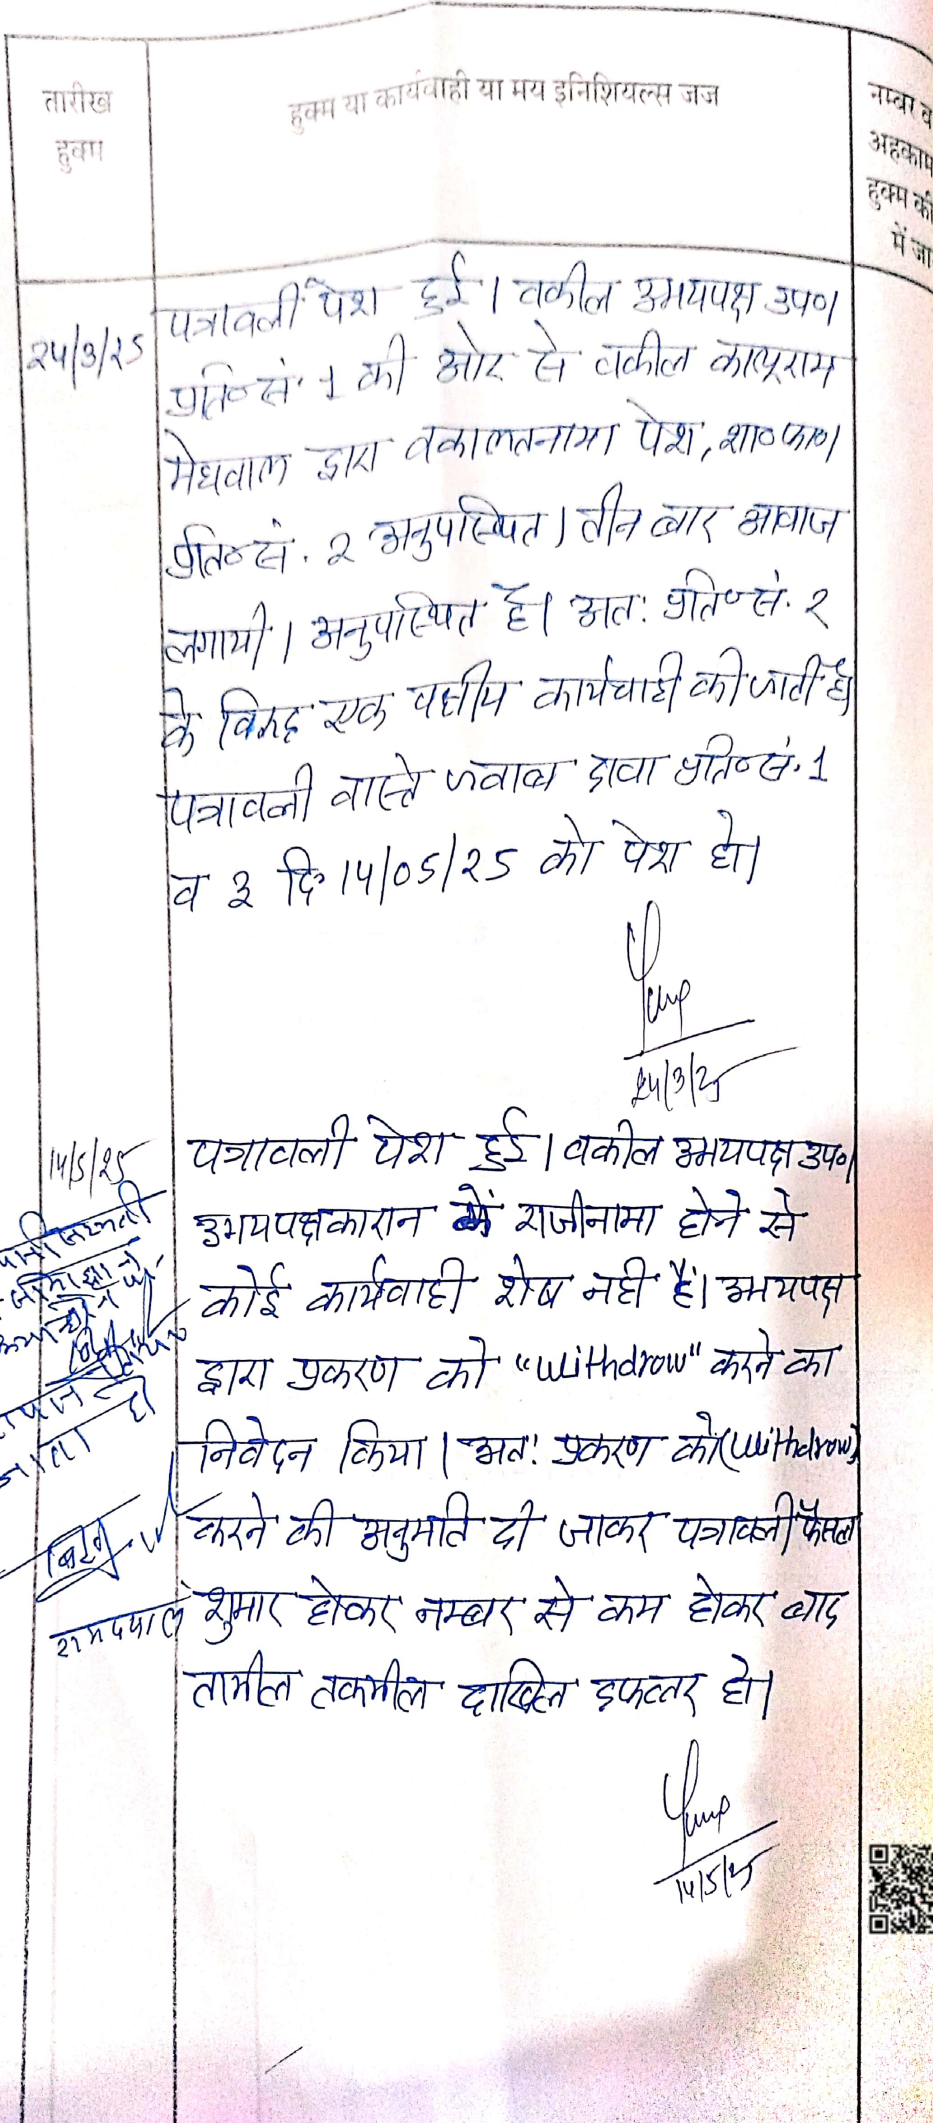 तारीख
हुक्म
हुक्म या कार्यवाही या मय इनिशियल्स जज
नम्बर व
अहकाम
हुक्म की
में जा
24/3/25
पत्रावली पेश हुई। वकील उभयपक्ष उप०।
प्रति०सं. 1 की ओर से वकील कालूराम
मेघवाल द्वारा वकालतनामा पेश, शा०फा०।
प्रति०सं. 2 अनुपस्थित। तीन बार आवाज
लगायी। अनुपस्थित है। अत: प्रति०सं. 2
के विरुद्ध एक पक्षीय कार्यवाही की जाती है।
पत्रावली वास्ते जवाब दावा प्रति०सं. 1
व 3 दि. 14/05/25 को पेश हो।
24/3/25
14/5/25
पत्रावली पेश हुई। वकील उभयपक्ष उप०।
उभयपक्षकारान में राजीनामा होने से
कोई कार्यवाही शेष नहीं है। उभयपक्ष
द्वारा प्रकरण को "withdrow" करने का
निवेदन किया। अत: प्रकरण को (withdrow)
करने की अनुमति दी जाकर पत्रावली फैसल
शुमार होकर नम्बर से कम होकर बाद
तामील तकमील दाखिल दफ्तर हो।
रामदयाल
14/5/25